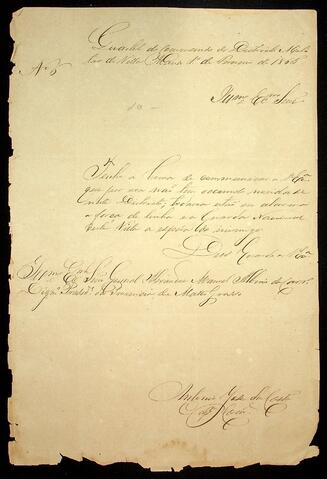 Quartel do Commando do Districto Mili-
tar de Villa Maria 1º de Fevereiro de 1865
Nº 5
Illmo Exmo Senr
Tenho a honra de communicar a V. Exª
que por ora não tem occorrido novidade
neste Districto, todavia está em
a força de linha e a Guarda Nacional
nesta Villa a espera do inimigo
Deos Guarde a V. Exª
Illmo e Exmo Senr General Alexandre Manoel Albino de Carvº
Digmº Presidº da Provincia de Matto Grosso
Antonio José da Costa
Capm